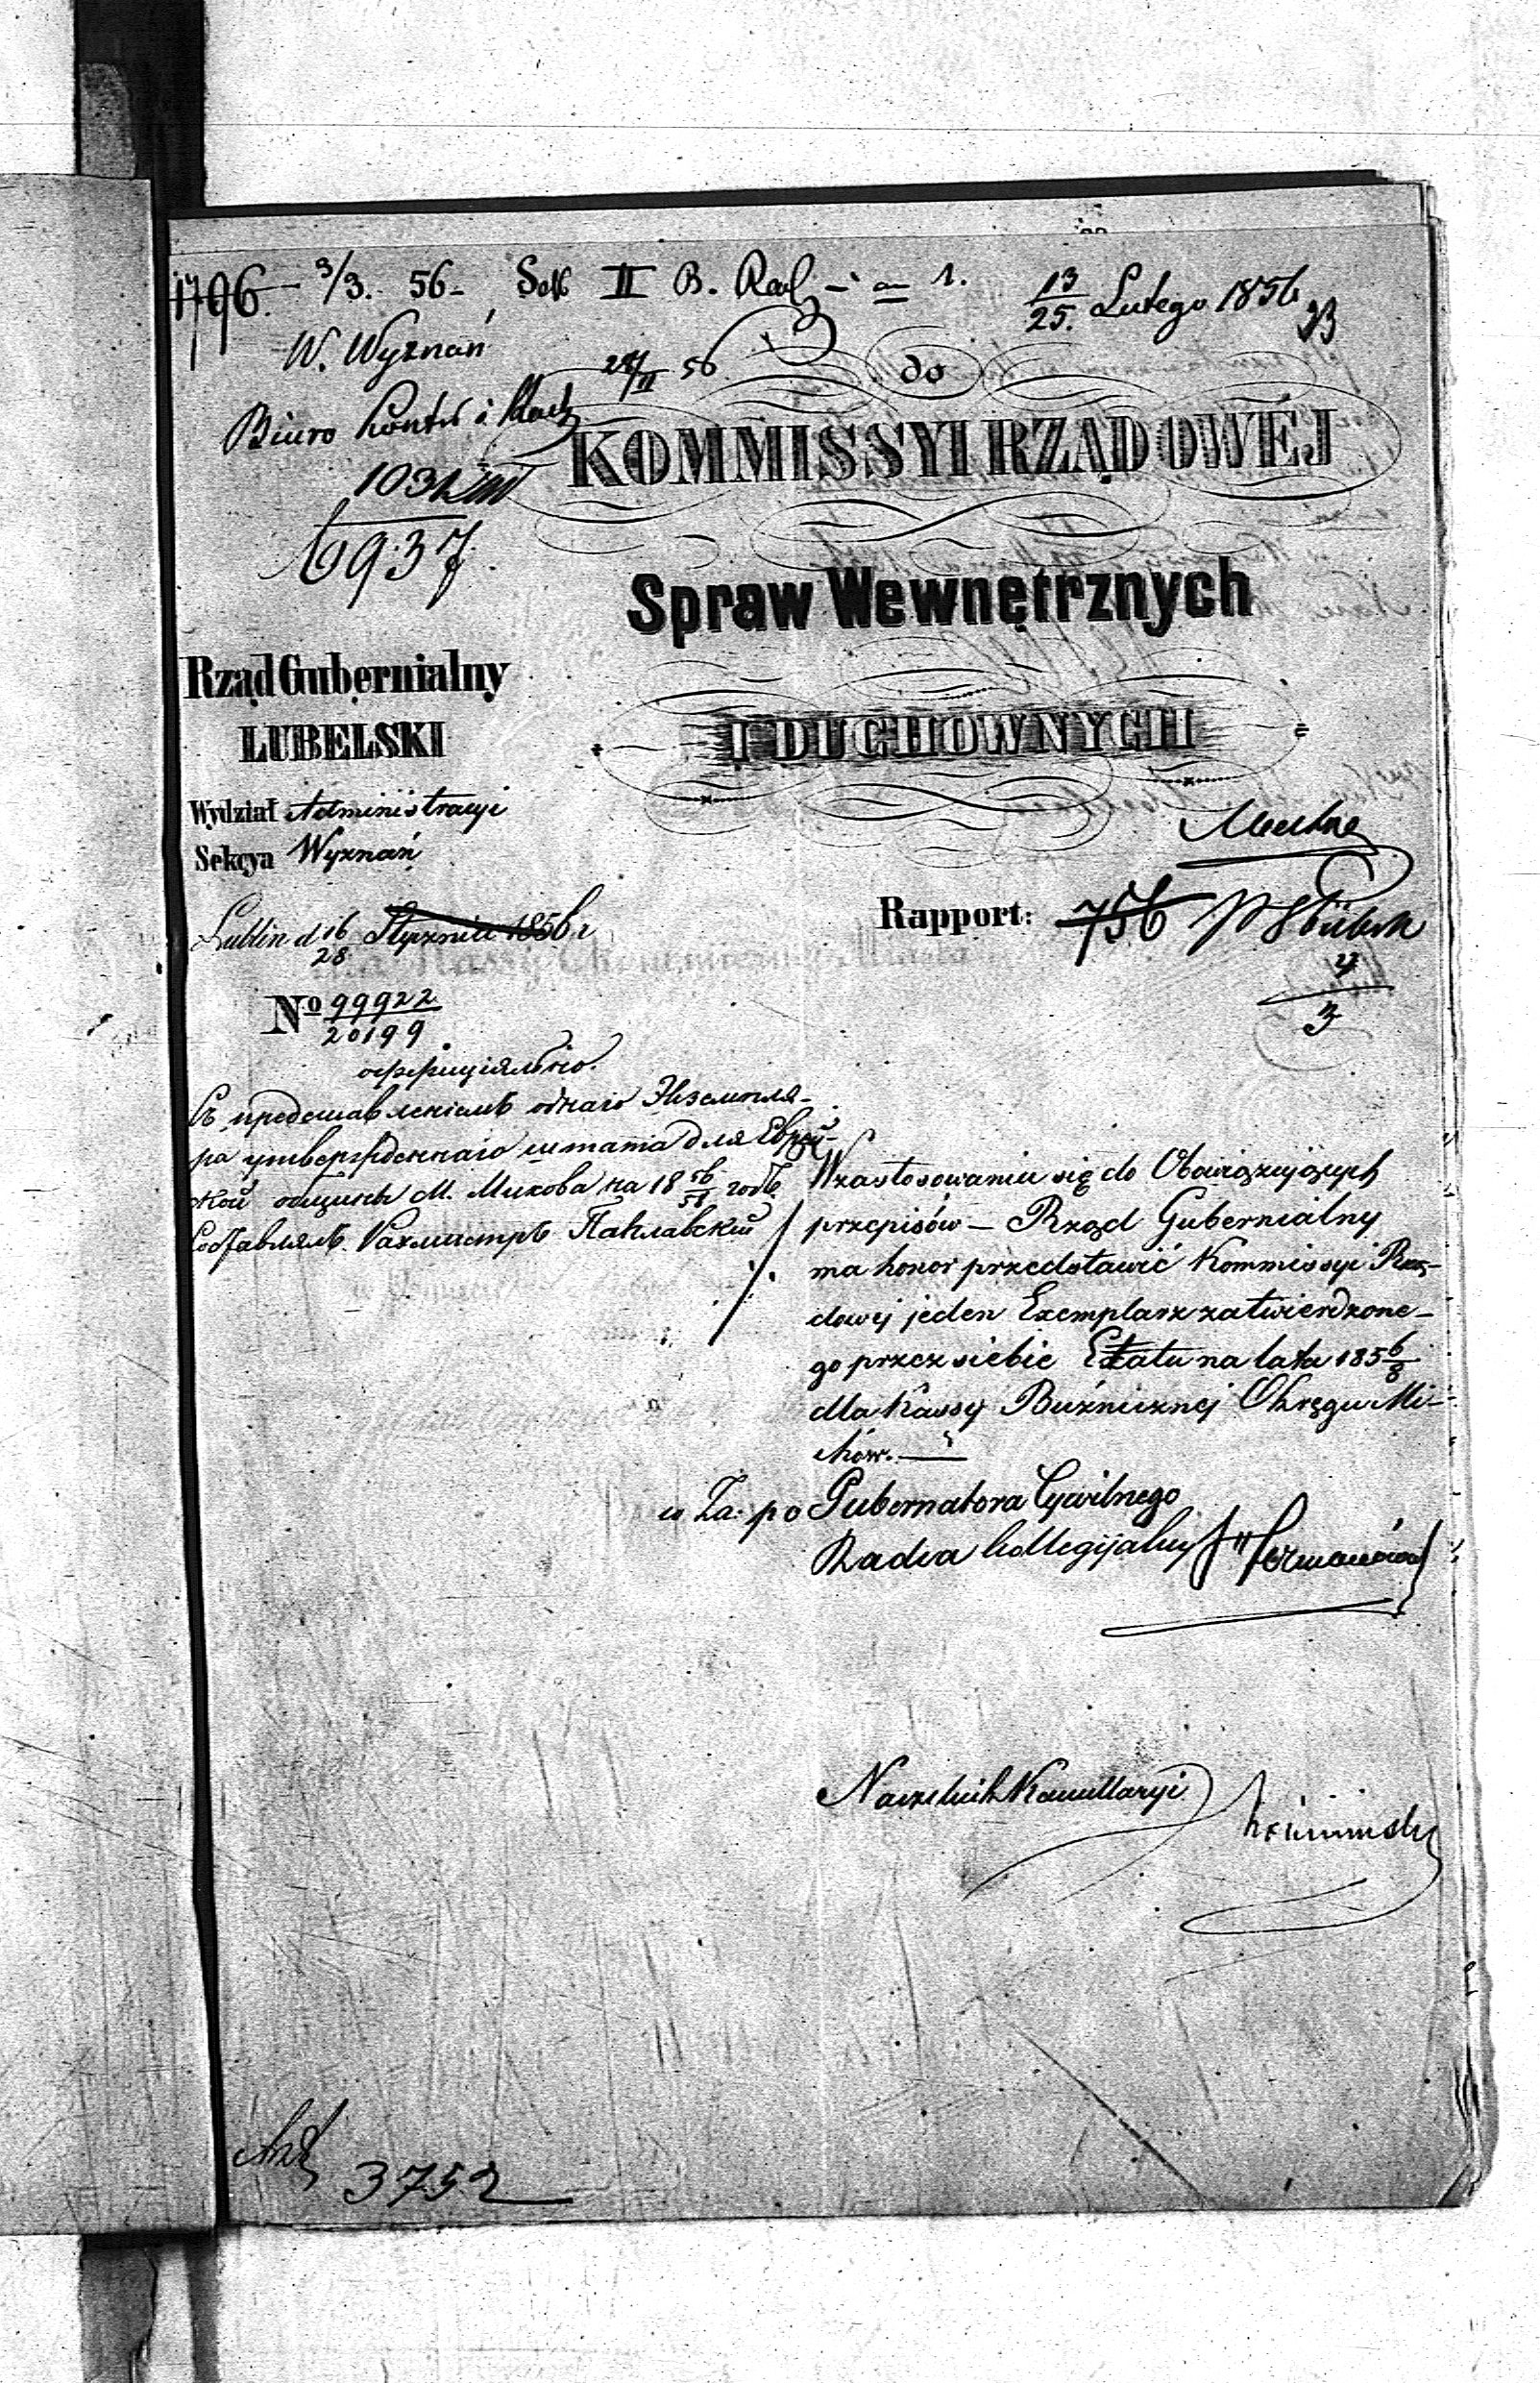 1796. 3/3. 56 - II B. 1. 13/25. Lutego 1856
W. Wyznań
28/II 56
do
Biuro Kontr i
KOMMISSYI RZĄDOWÉJ
6937.
Spraw Wewnętrznych
Rząd Gubernialny
LUBELSKI
I DUCHOWNYCH
Wydział Administracyi
Sekcya Wyznań
Rapport: 756
Lublin d 16/28 Stycznia 1856 r
4/3
No 99922/20199
оффиціяльно.
Съ представленіемъ однаго Экземпля-
ра утвержденнаго штата для Еврей-
ской общины М. Михова на 18 56/58 годъ.
Составлялъ Вахмистръ Павлавскій
W zastosowaniu się do Obowiązujących
przepisów — Rząd Gubernialny
ma honor przedstawić Kommissyi Rzą-
dowej jeden Exemplarz zatwierdzone-
go przez siebie Etatu na lata 185 6/8
dla Kassy Bużnicznej Okręgu Mi-
chów. —
w Za: po Gubernatora Cywilnego
Radca Kollegijalny
Naczelnik Kancellaryi
3752